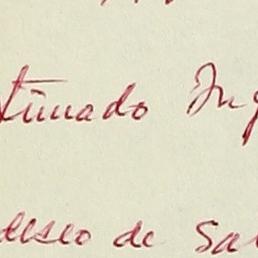 timado Ing
deseo de sal